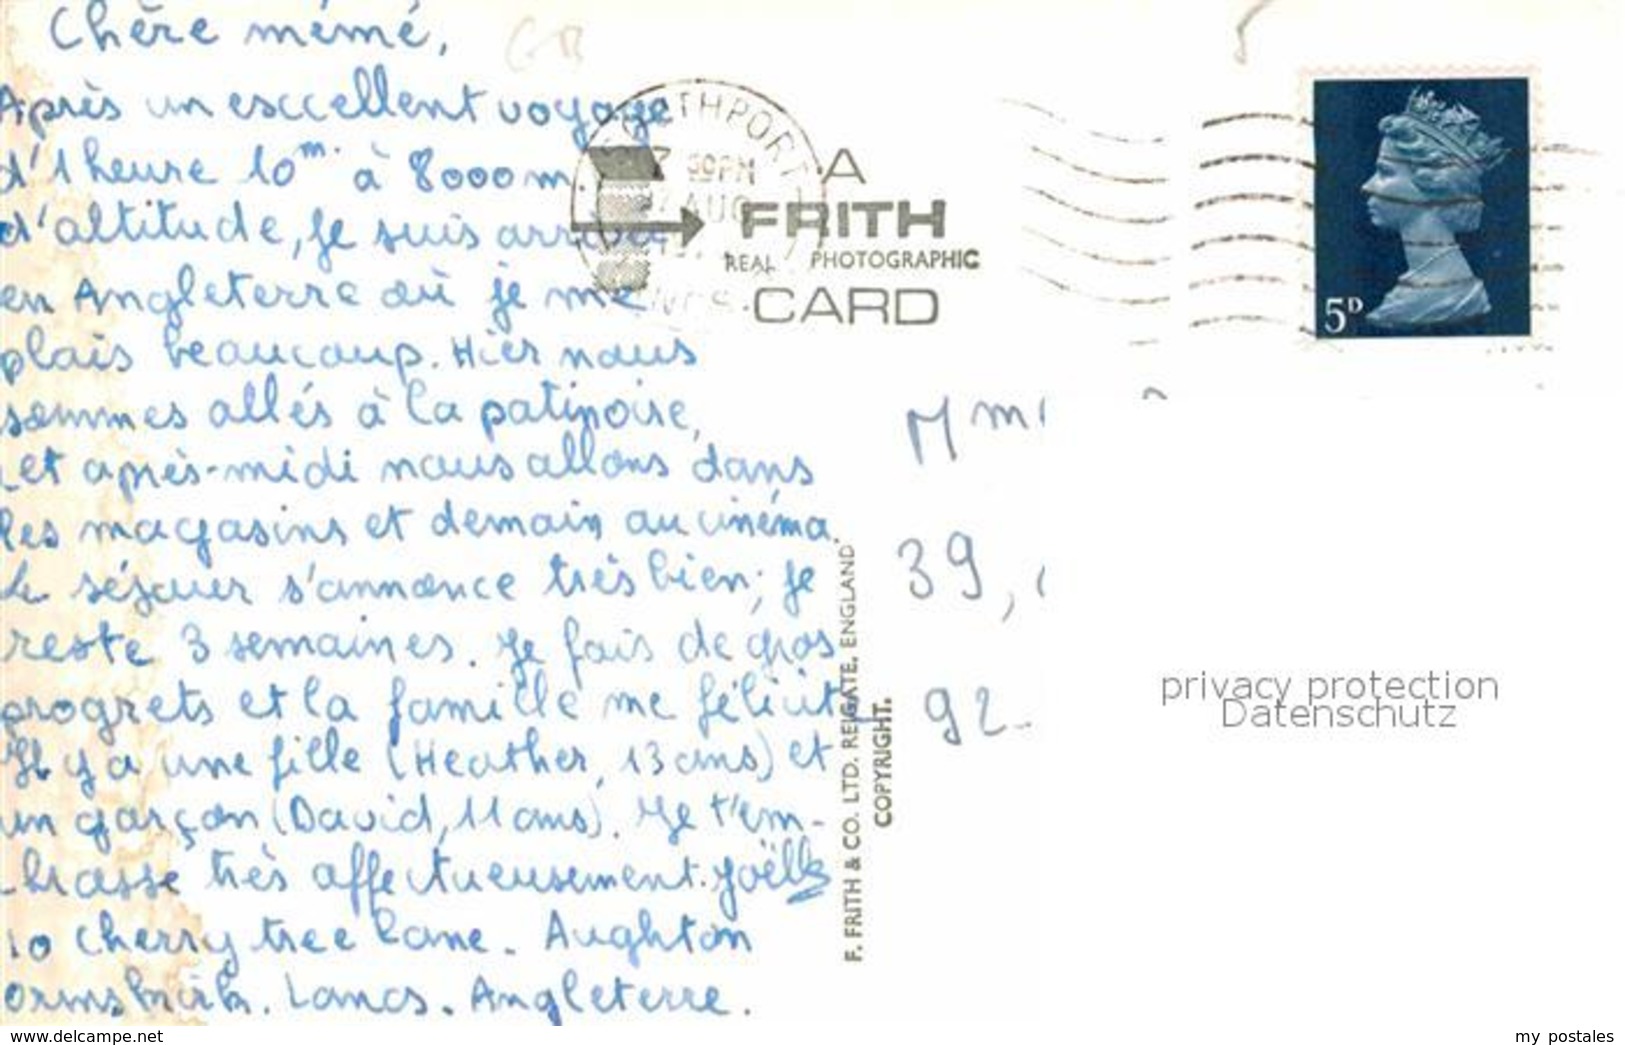 Chère mémé,
Après un exccellent voyage
d'1 heure 10m. à 8000m
d'altitude, je suis arrivée
en Angleterre où je me
plais beaucoup. Hier nous
sommes allés à la patinoire,
cet après-midi nous allons dans
les magasins et demain au cinéma.
Le séjour s'annonce très bien; je
reste 3 semaines. Je fais de gros
progrets et la famille me félicite
Il y a une fille (Heather, 13 ans) et
un garçon (David, 11 ans). Je t'em-
brasse très affectueusement. Joëlle
10 Cherry tree lane. Aughton
ormskirk. Lancs. Angleterre.
GB
5
SOUTHPORT
7 30PM
AUG
LANCS.
A
FRITH
REAL PHOTOGRAPHIC
CARD
5D
Mm
39,
92
F. FRITH & CO. LTD. REIGATE, ENGLAND
COPYRIGHT.
privacy protection
Datenschutz
www.delcampe.net
my postales